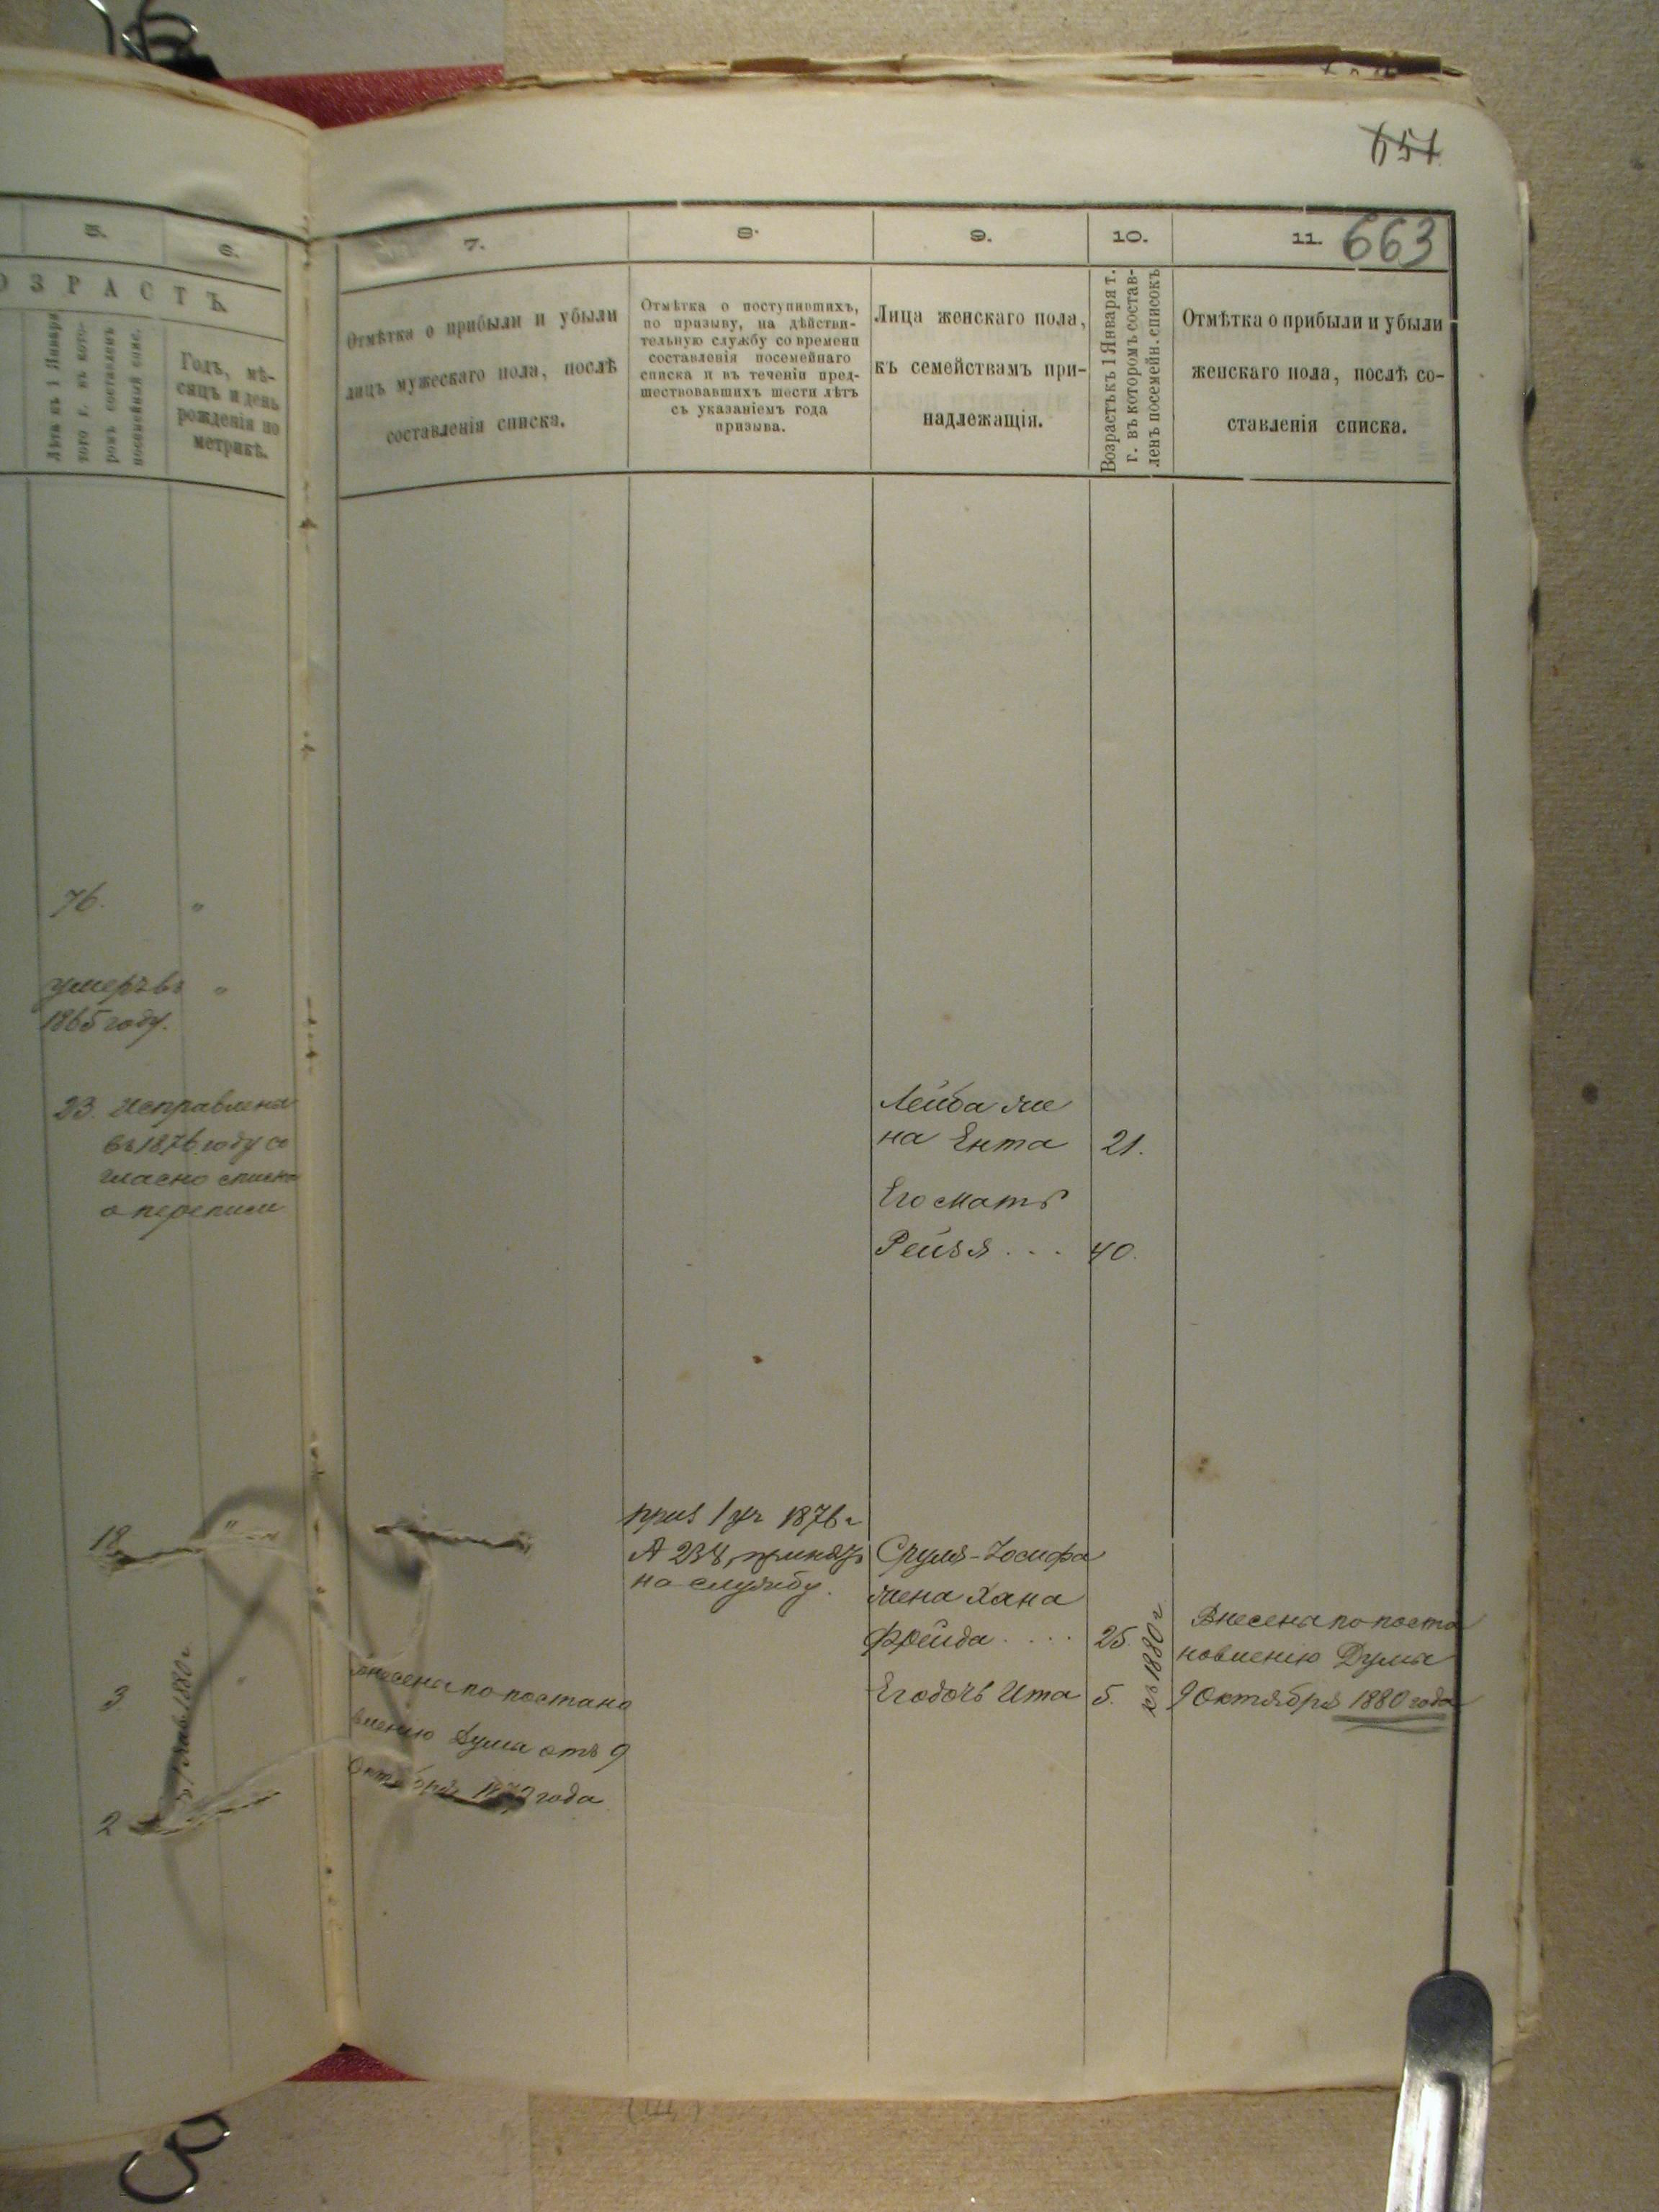 651
663
5.
6.
7.
8.
9.
10.
11.
ОЗРАСТЪ.
Лѣта къ 1 Января
того г. въ кото-
ромъ составленъ
посемейный спис.
Годъ, мѣ-
сяцъ и день
рожденія по
метрикѣ.
Отмѣтка о прибыли и убыли
лицъ мужескаго пола, послѣ
составленія списка.
Отмѣтка о поступившихъ,
по призыву, на дѣйстви-
тельную службу со времени
составленія посемейнаго
списка и въ теченіи пред-
шествовавшихъ шести лѣтъ
съ указаніемъ года
призыва.
Лица женскаго пола,
къ семействамъ при-
надлежащія.
Возрастъ къ 1 Января т.
г. въ которомъ состав-
ленъ посемейн. списокъ
Отмѣтка о прибыли и убыли
женскаго пола, послѣ со-
ставленія списка.
76. "
умеръ въ "
1865 году.
23. Исправлена
въ 1876 году со
гласно списка
о переписи
Лейба же
на Ента 21.
Его мать
Рейзя . . . 40.
18
приз 1 уч 1876 г
№ 238, принятъ
на службу.
Сруля-Іосифа
жена Хана
Фрейда . . . . 25.
Его дочь Ита 5.
къ 1880 г
Внесена по поста
новленію Думы
9 Октября 1880 года
3 "
1880 г
2
внесены по постано
вленію Думы отъ 9
Октября года